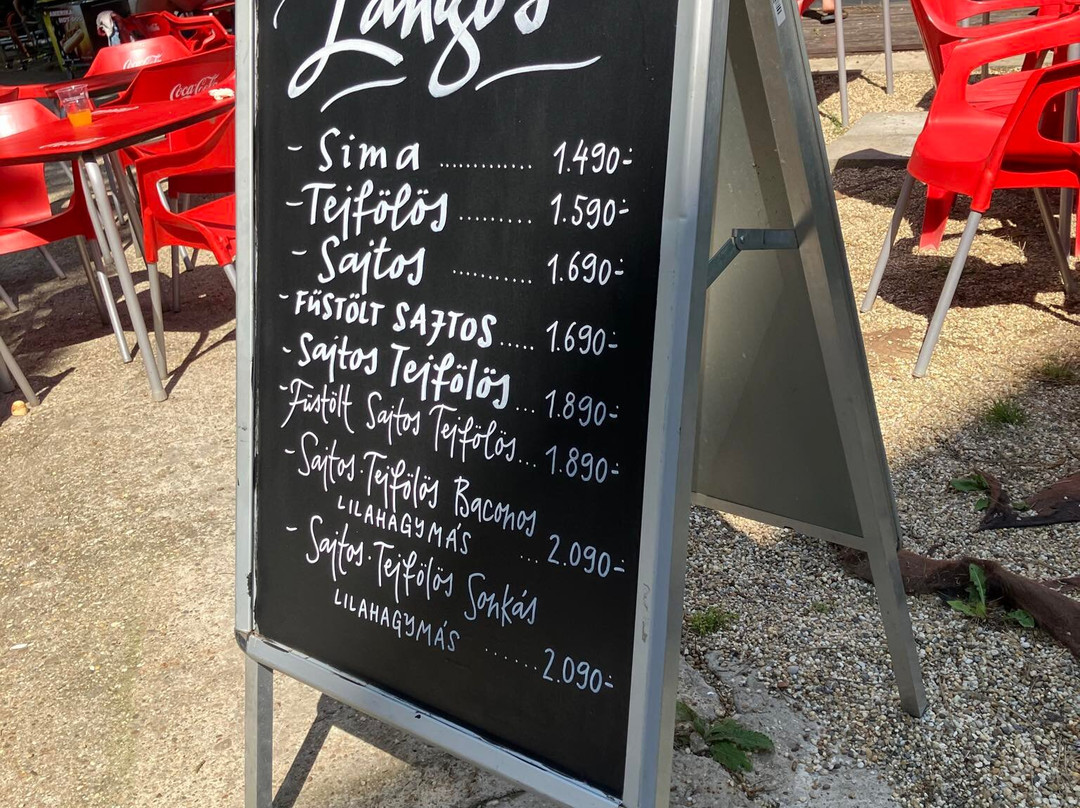 Lángos
- Sima ............ 1.490.-
- Tejfölös ......... 1.590.-
- Sajtos .......... 1.690.-
- FÜSTÖLT SAJTOS ..... 1.690.-
- Sajtos Tejfölös ... 1.890.-
- Füstölt Sajtos Tejfölös ... 1.890.-
- Sajtos·Tejfölös Baconos
LILAHAGYMÁS ... 2.090.-
- Sajtos·Tejfölös Sonkás
LILAHAGYMÁS ....... 2.090.-
Coca-Cola
Coca-Cola